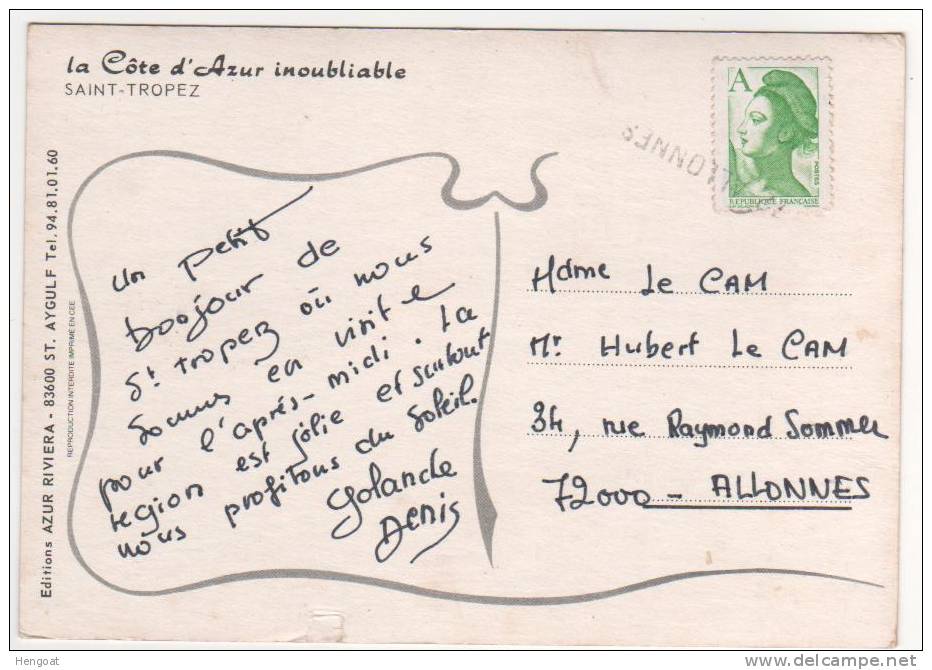 la Côte d'Azur inoubliable
SAINT-TROPEZ
Editions AZUR RIVIERA - 83600 ST. AYGULF Tel. 94.81.01.60
REPRODUCTION INTERDITE IMPRIMÉ EN CEE
un petit
bonjour de
St tropez où nous
sommes en visite
pour l'après-midi. La
région est jolie et surtout
nous profitons du soleil.
Yolande
Denis
A
POSTES
REPUBLIQUE FRANCAISE
ALLONNES
Mdme Le CAM
Mr Hubert Le CAM
34, rue Raymond Sommer
72000 - ALLONNES
Hengoat
www.delcampe.net